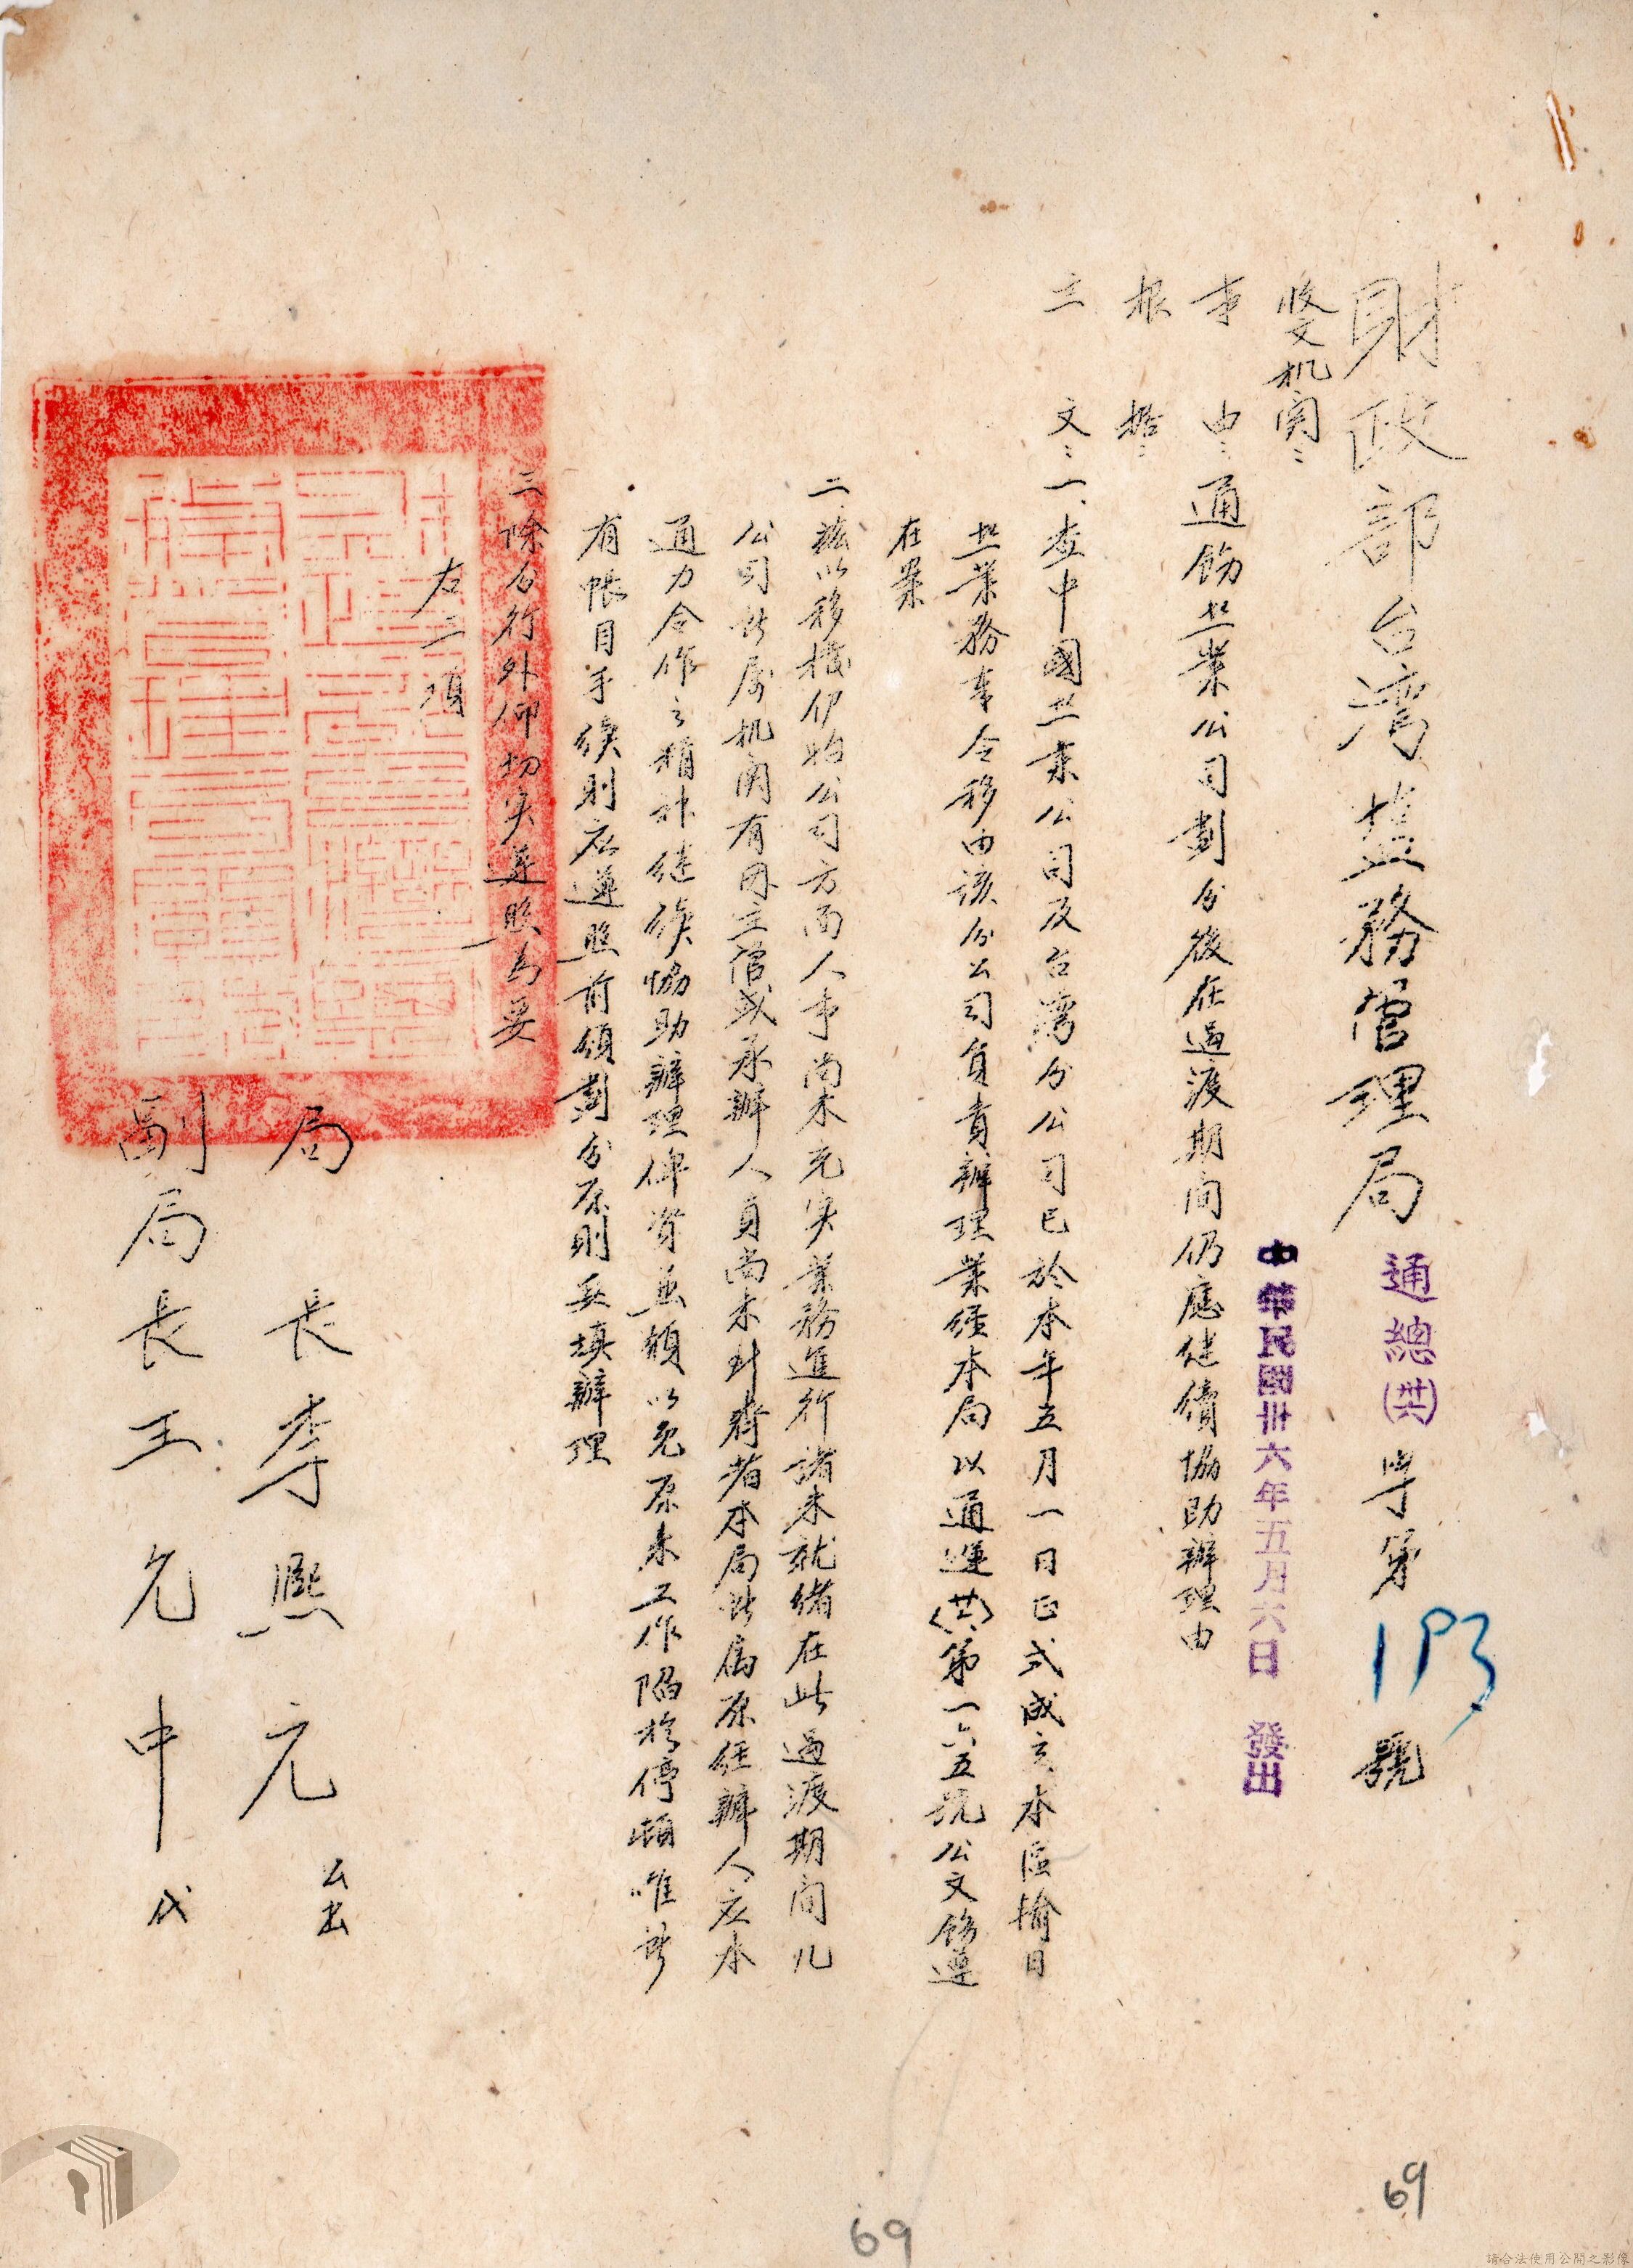 財政部台湾盐務管理局 通總(卄)字第193號
收文机関：
中華民國卅六年五月六日 發出
事 由：通飭盐業公司劃分後在過渡期间仍應继續協助辦理由
根 据：
主 文：一、查中國盐業公司及台湾分公司已於本年五月一日正式成立本區输日
盐業務事令移由该分公司負責辦理業經本局以通運(卄)第一六五號公文飭遵
在案
二、兹以移機伊始公司方面人事尚未充实業務進行諸未就緒在此過渡期间凡
公司所属机関有因主管或承辦人員尚未到齊者本局所属原经辦人应本
通力合作之精神继续協助辦理俾資兼顧以免原来工作陷於停頓唯所
有帳目手续則应遵照前頒劃分原則妥填辦理
三、除分行外仰切实遵照為要
右二項
局長李熙元 公出
副局長王允中 代
69
69
請合法使用公開之影像